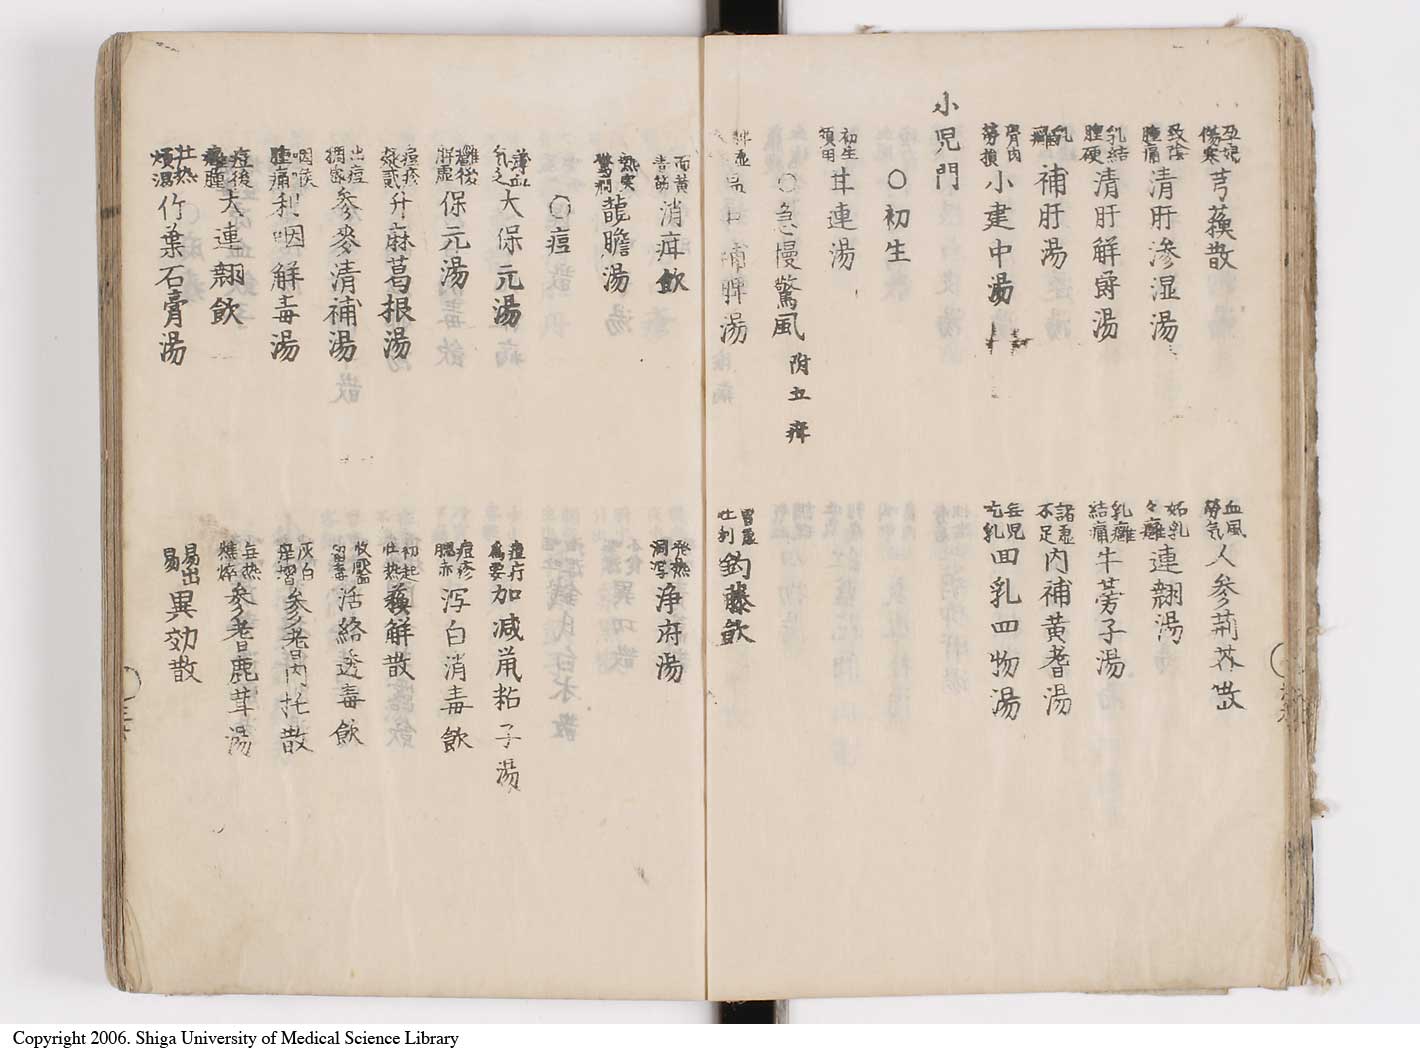 孕婦傷寒 芎蘓散
血風勞気 人参荊芥散
致陰腫痛 清肝滲湿湯
妬乳々癰 連翹湯
乳結腫硬 清肝解欝湯
乳癰結痛 牛蒡子湯
乳癰 補肝湯
諸虚不足 内補黄耆湯
骨肉勞損 小建中湯
無児吃乳 回乳四物湯
小児門
〇初生
初生領用 甘連湯
〇急慢驚風 附五疳
脾虚 補脾湯
胃虚吐利 釣藤飲
面黄 消疳飲
発熱瀉 浄府湯
熱實驚癇 龍膽湯
〇痘
薄血気乏 大保元湯
痘疔為要 加減鼠粘子湯
癰後解虚 保元湯
痘疹赤 泻白消毒飲
痘疹 升麻葛根湯
初起壮熱 蘓解散
出痘稠密 参麥清補湯
活絡透毒飲
咽喉腫痛 利咽解毒湯
灰白 参耆内托散
痘後癰腫 大連翹飲
無熱 参耆鹿茸湯
壮熱煩渇 竹葉石膏湯
易出易 異効散
Copyright 2006. Shiga University of Medical Science Library